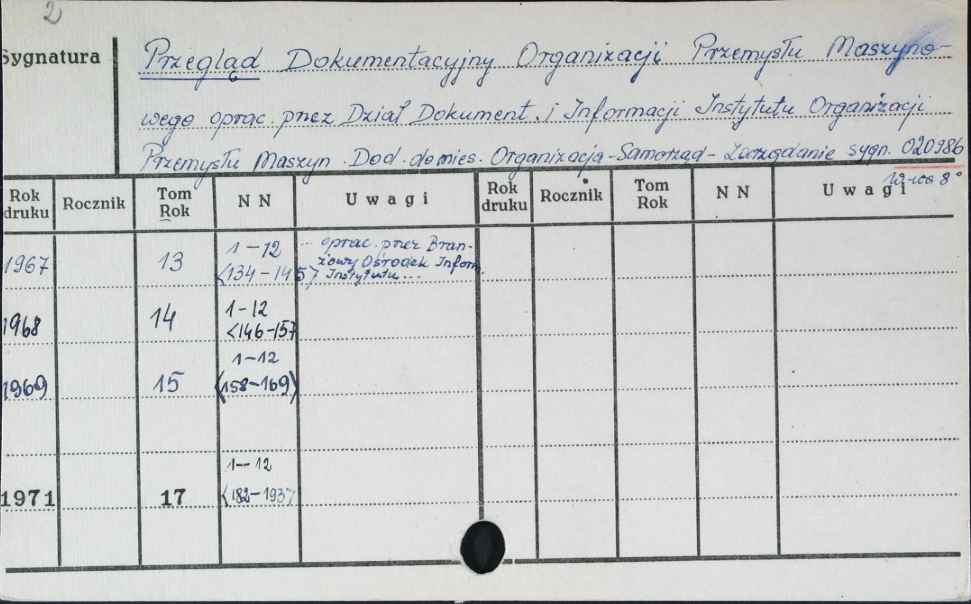 2
Sygnatura
Przegląd Dokumentacyjny Organizacji Przemysłu Maszyno-
wego oprac. przez Dział Dokument. i Informacji Instytutu Organizacji
Przemysłu Maszyn. Dod. do mies. Organizacja-Samorząd-Zarządzanie sygn. 020986
W-wa 8°
Rok druku Rocznik Tom Rok N N Uwagi Rok druku Rocznik Tom Rok N N Uwagi
1967 13 1-12 <134-145> ... oprac. przez Bran-
żowy Ośrodek Inform.
Instytutu...
1968 14 1-12 <146-157
1969 15 1-12 (158-169)
1971 17 1-12 <182-193>